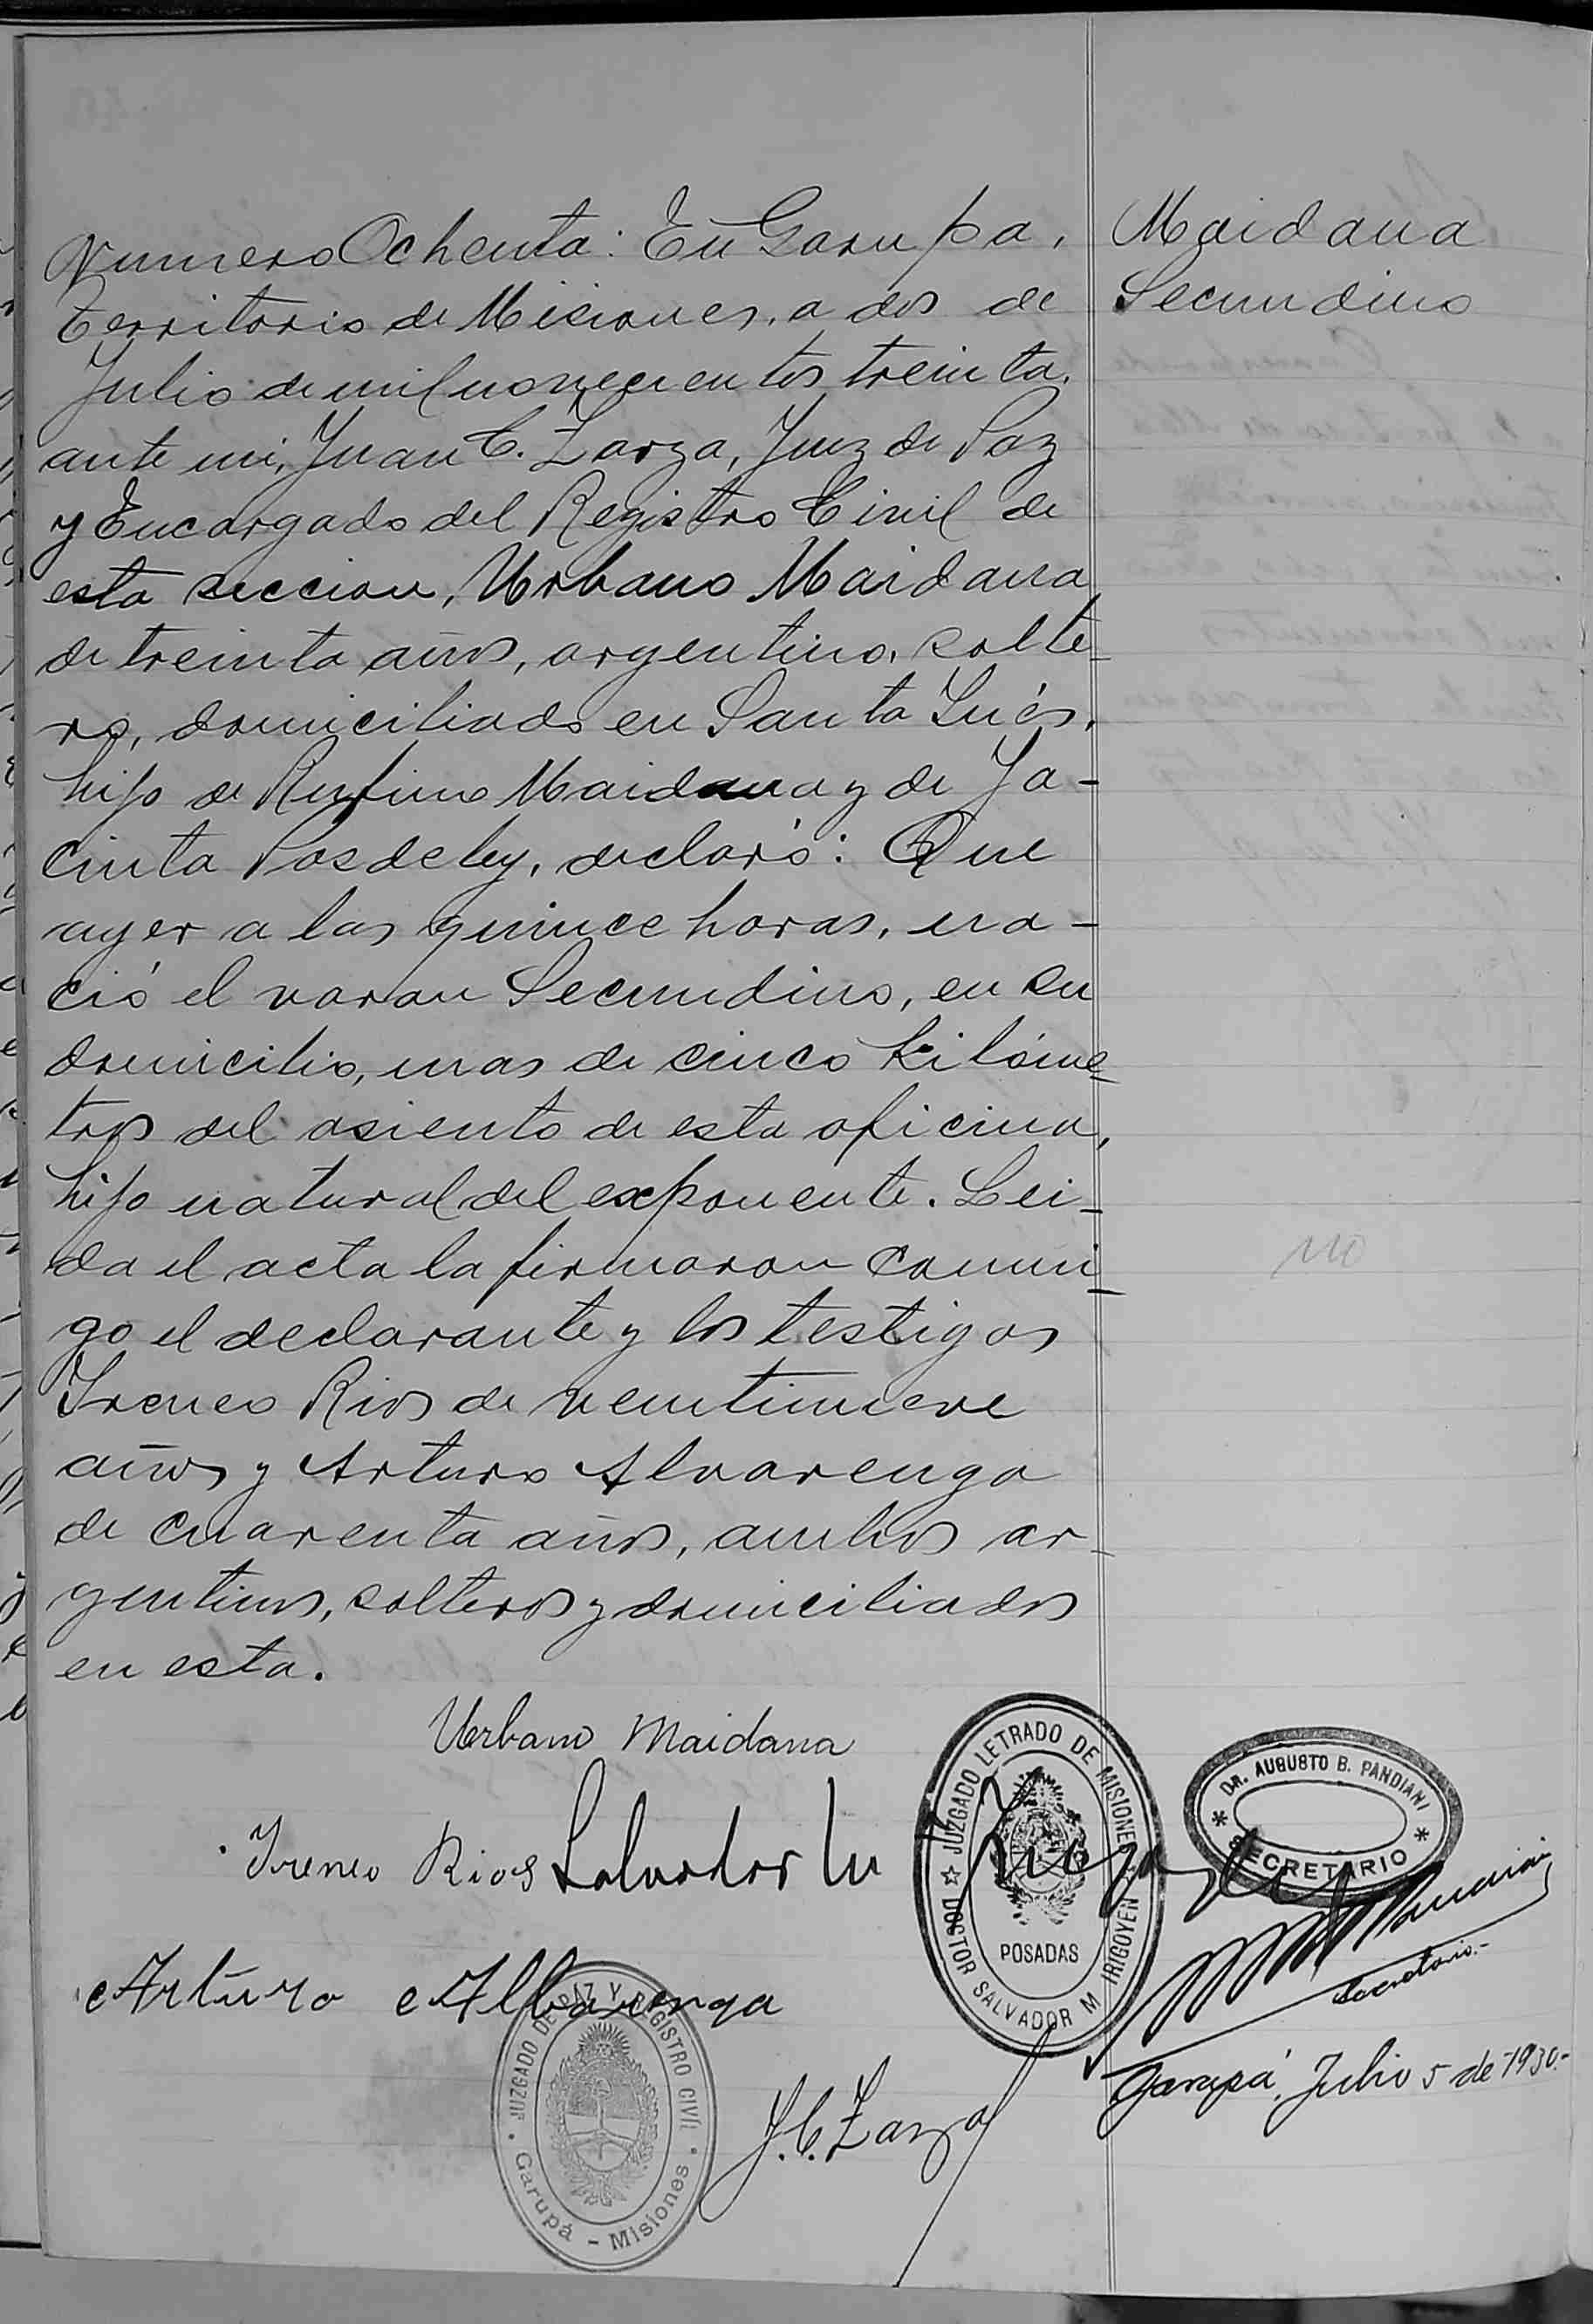 Maidana
Secundino
Numero Ochenta: En Garupa,
Territorio de Misiones, a dos de
Julio de mil novecientos treinta,
ante mi, Juan C. Zarza, Juez de Paz
y Encargado del Registro Civil de
esta seccion, Urbano Maidana
de treinta años, argentino, solte-
ro, domiciliado en Santa Inés,
hijo de Rufino Maidana y de Ja-
cinta Posdeley, declaró: Que
ayer a las quince horas, na-
ció el varon Secundino, en su
domicilio, mas de cinco kilóme-
tros del asiento de esta oficina,
hijo natural del exponente. Lei-
da el acta la firmaron conmi-
go el declarante y los testigos
Ireneo Rios de veintinueve
años y Arturo Alvarenga
de cuarenta años, ambos ar-
gentinos, solteros y domiciliados
en esta.
Urbano Maidana
Ireneo Rios Salvador M Irigoyen
Arturo Albarenga
J. C. Zarza
JUZGADO LETRADO DE MISIONES
DOCTOR SALVADOR M IRIGOYEN
POSADAS
DR. AUGUSTO B. PANDIANI
SECRETARIO
Secretario.-
Garupá, Julio 5 de 1930.-
JUZGADO DE PAZ Y REGISTRO CIVIL
Garupá - Misiones